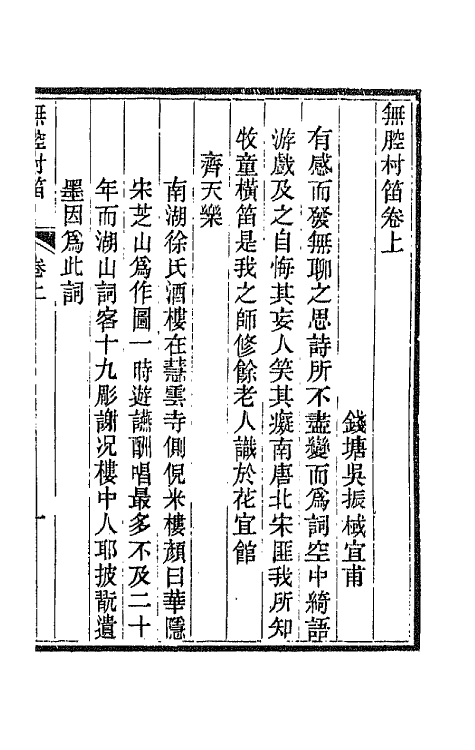 無腔村笛卷上
錢塘吳振棫宜甫
有感而發無聊之思詩所不盡變而爲詞空中綺語
游戲及之自悔其妄人笑其癡南唐北宋匪我所知
牧童橫笛是我之師修餘老人識於花宜館
齊天樂
南湖徐氏酒樓在慧雲寺側倪米樓顏曰華隱
朱芝山爲作圖一時遊讌酬唱最多不及二十
年而湖山詞客十九彫謝况樓中人耶披翫遺
墨因爲此詞
無腔村笛
卷上
一